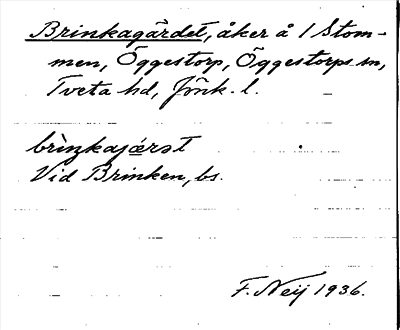 Brinkagärdet, åker å 1 Stom-
men, Öggestorp, Öggestorps sn,
Tveta hd, Jönk. l.
Vid Brinken, bs.
F. Neij 1936.